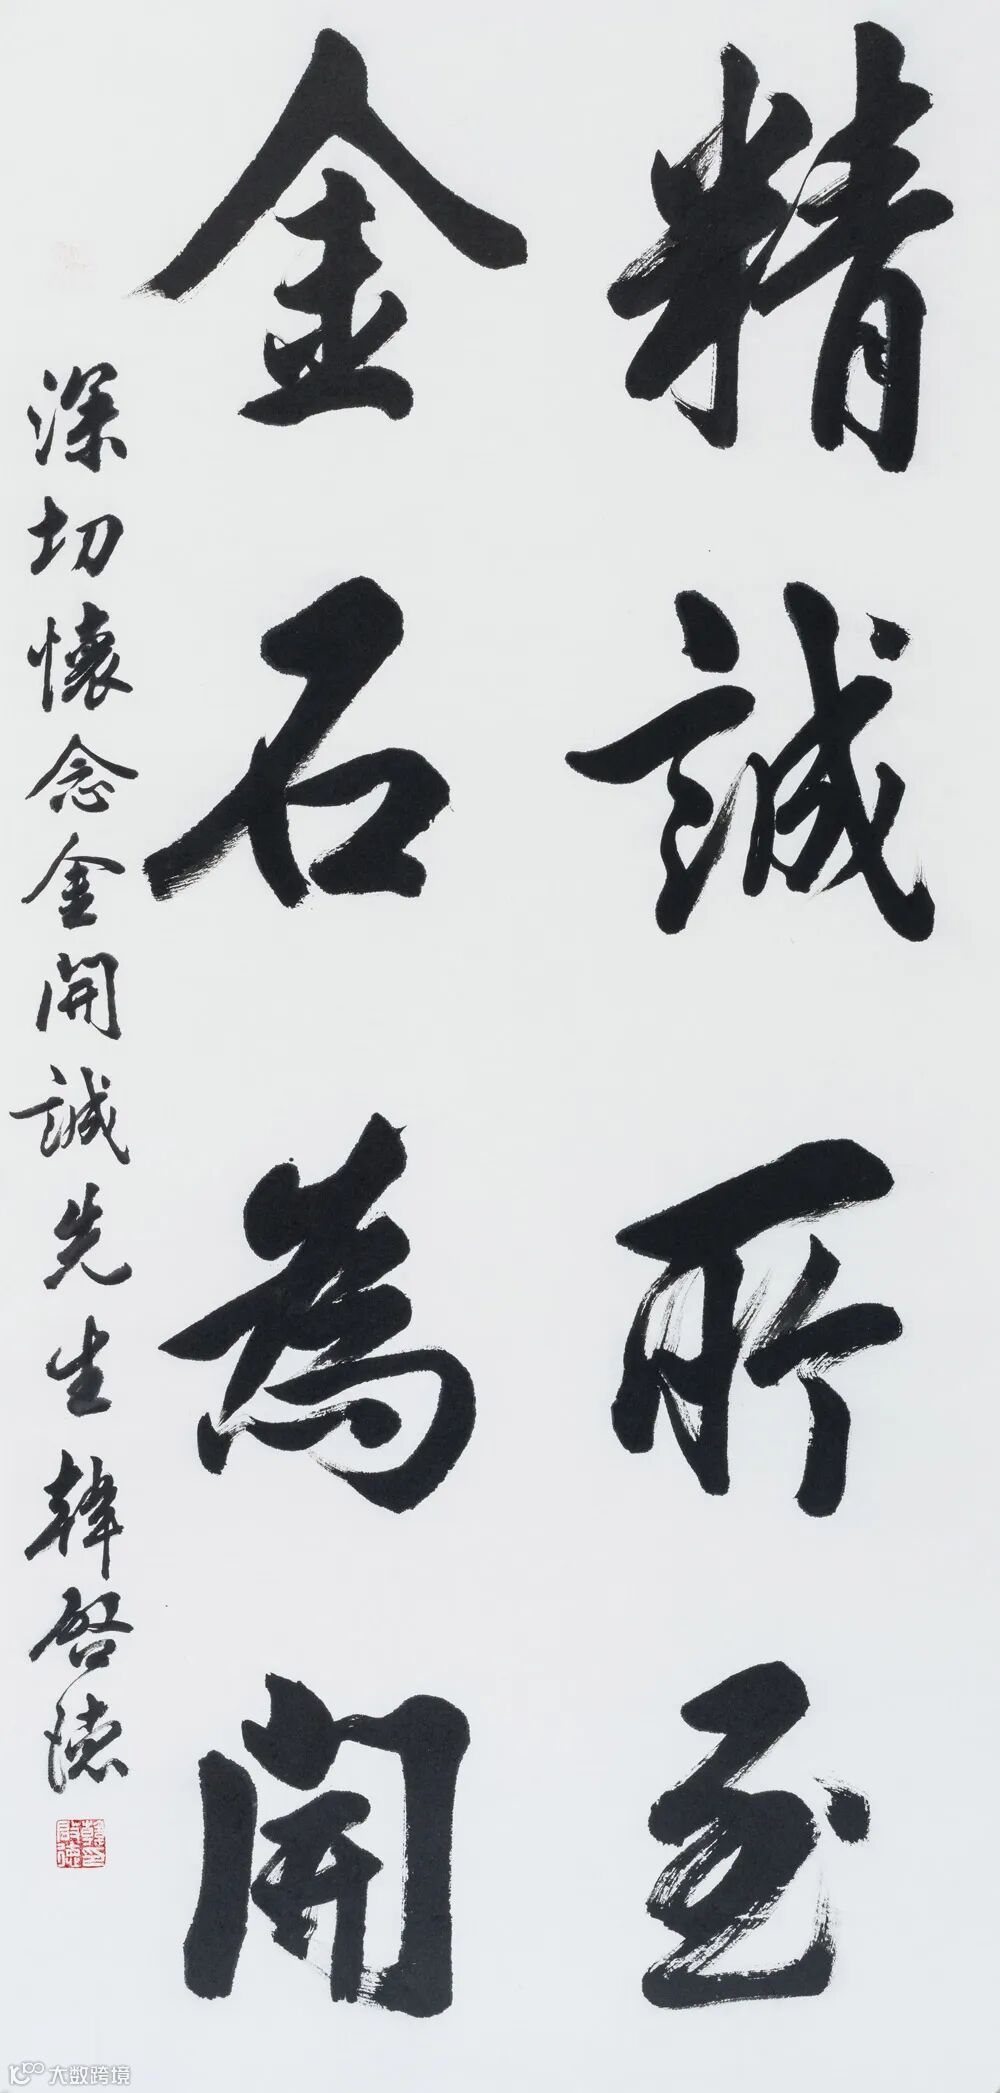 精誠所至
金石為開
深切懷念金開誠先生韓啓德
大数跨境